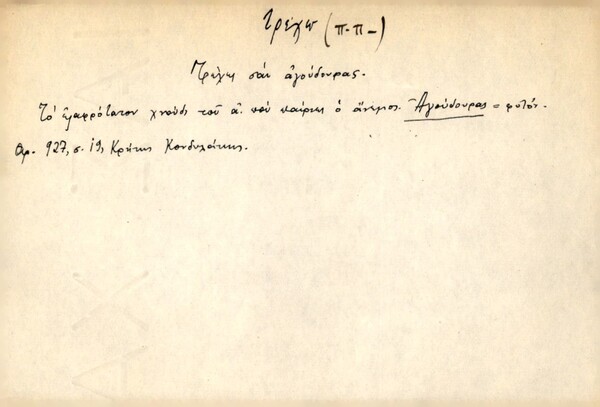 τρέχω (π-π-)
Τρέχει σὰν ἀγούδουρας.
Τὸ ἐλαφρότατον χνοῦδι τοῦ ἀ. ποὺ παίρνει ὁ ἄνεμος. Ἀγούδουρας = φυτόν.
Ἀρ. 927, σ. 19, Κρήτης Κονδυλάκης.